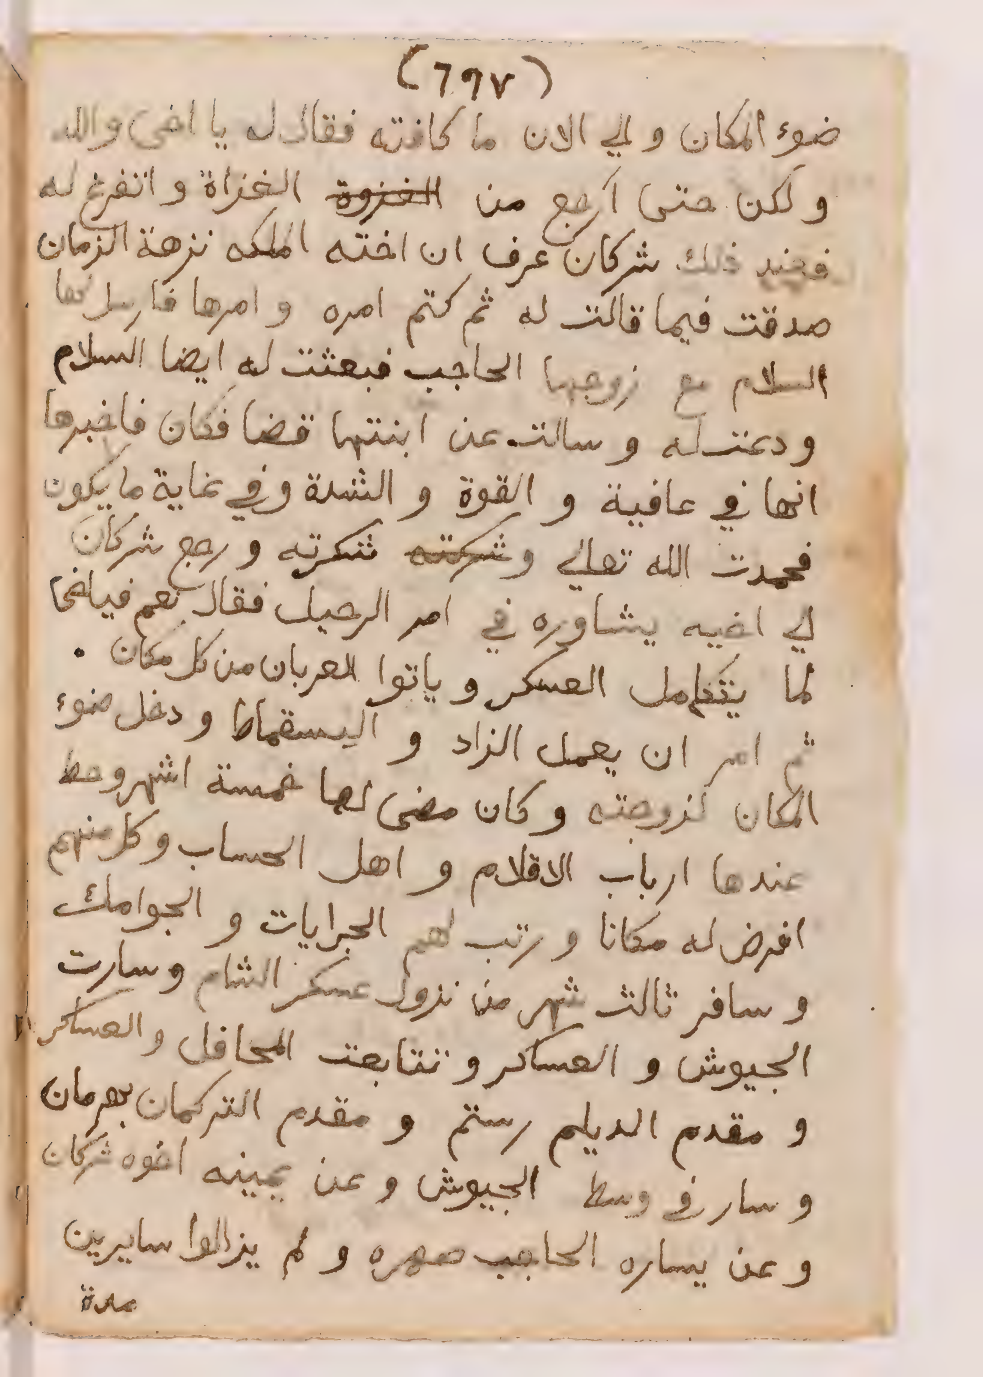 (٦٩٧)
ضوء المكان و الي الان ما كافته فقال له يا اخي والله
و لكن حتى ارجع من الغزوة الغزاة و اتفرغ له
فعند ذلك شركان عرف ان اخته الملكه نزهة الزمان
صدقت فيما قالت له ثم كتم امره و امرها فارسل لها
السلام مع زوجها الحاجب فبعثت له ايضا السلام
ودعت له و سالت عن ابنتها قضا فكان فاخبرها
انها في عافية و القوة و الشدة وفي غاية ما يكون
فحمدت الله تعالي و شكرته شكرته و رجع شركان
الي اخيه يشاوره في امر الرحيل فقال نعم فيا اخي
لما يتكامل العسكر و ياتوا العربان من كل مكان .
ثم امر ان يعمل الزاد و البسقماط و دخل ضوء
المكان لزوجته و كان مضى لها خمسة اشهر وحط
عندها ارباب الاقلام و اهل الحساب و كل منهم
افرض له مكانا و رتب لهم الجرايات و الجوامك
و سافر ثالث شهر من نزول عسكر الشام و سارت
الجيوش و العساكر و تتابعت المحافل و العساكر
و مقدم الديلم رستم و مقدم التركمان بهرمان
و سار في وسط الجيوش و عن يمينه اخوه شركان
و عن يساره الحاجب صهره و لم يزالوا سايرين
مدة